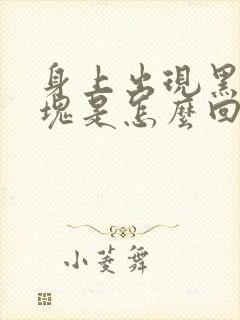 身上出現黑
塊是怎麼回
小菱舞